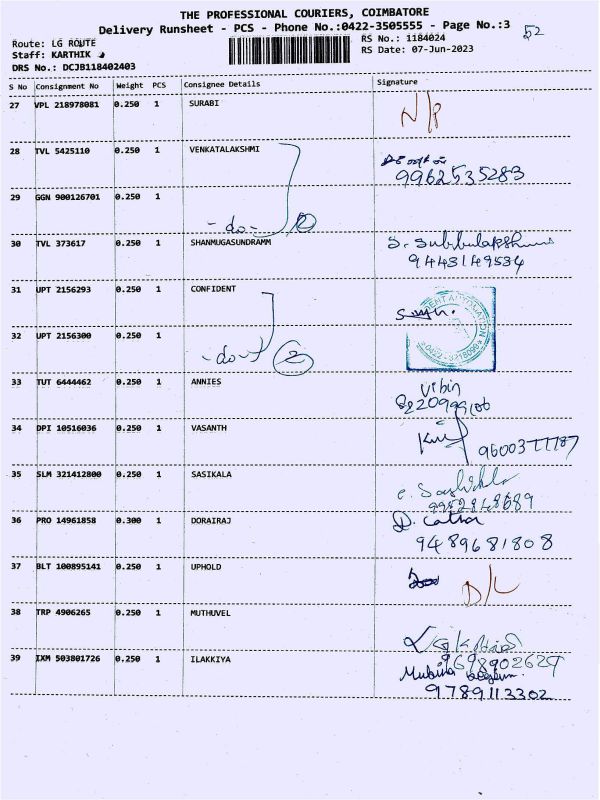 THE PROFESSIONAL COURIERS, COIMBATORE
Delivery Runsheet - PCS - Phone No.:0422-3505555 - Page No.:3
52
Route: LG ROUTE
RS No.: 1184024
Staff: KARTHIK
RS Date: 07-Jun-2023
DRS No.: DCJB118402403
S No Consignment No Weight PCS Consignee Details Signature
27 VPL 218978081 0.250 1 SURABI
N/P
28 TVL 5425110 0.250 1 VENKATALAKSHMI
9962535283
29 GGN 900126701 0.250 1
-do- 2
30 TVL 373617 0.250 1 SHANMUGASUNDRAMM
S. Subbulakshmi
9443149534
31 UPT 2156293 0.250 1 CONFIDENT
32 UPT 2156300 0.250 1
-do- 2
33 TUT 6444462 0.250 1 ANNIES
Vibin
34 DPI 10516036 0.250 1 VASANTH
35 SLM 321412800 0.250 1 SASIKALA
9952848689
36 PRO 14961858 0.300 1 DORAIRAJ
9489681808
37 BLT 100895141 0.250 1 UPHOLD
D/L
38 TRP 4906265 0.250 1 MUTHUVEL
9698902629
39 IXM 503801726 0.250 1 ILAKKIYA
9789113302